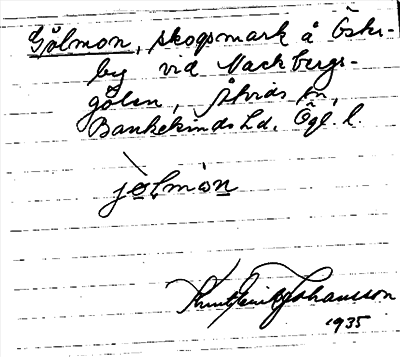 Gölmon, skogsmark å Öster-
by vid Nackbergs-
gölen, Åtvids sn,
Bankekinds hd. Ögl. l.
jo̠l̠mo̠n̠
Knut Erik Johansson
1935